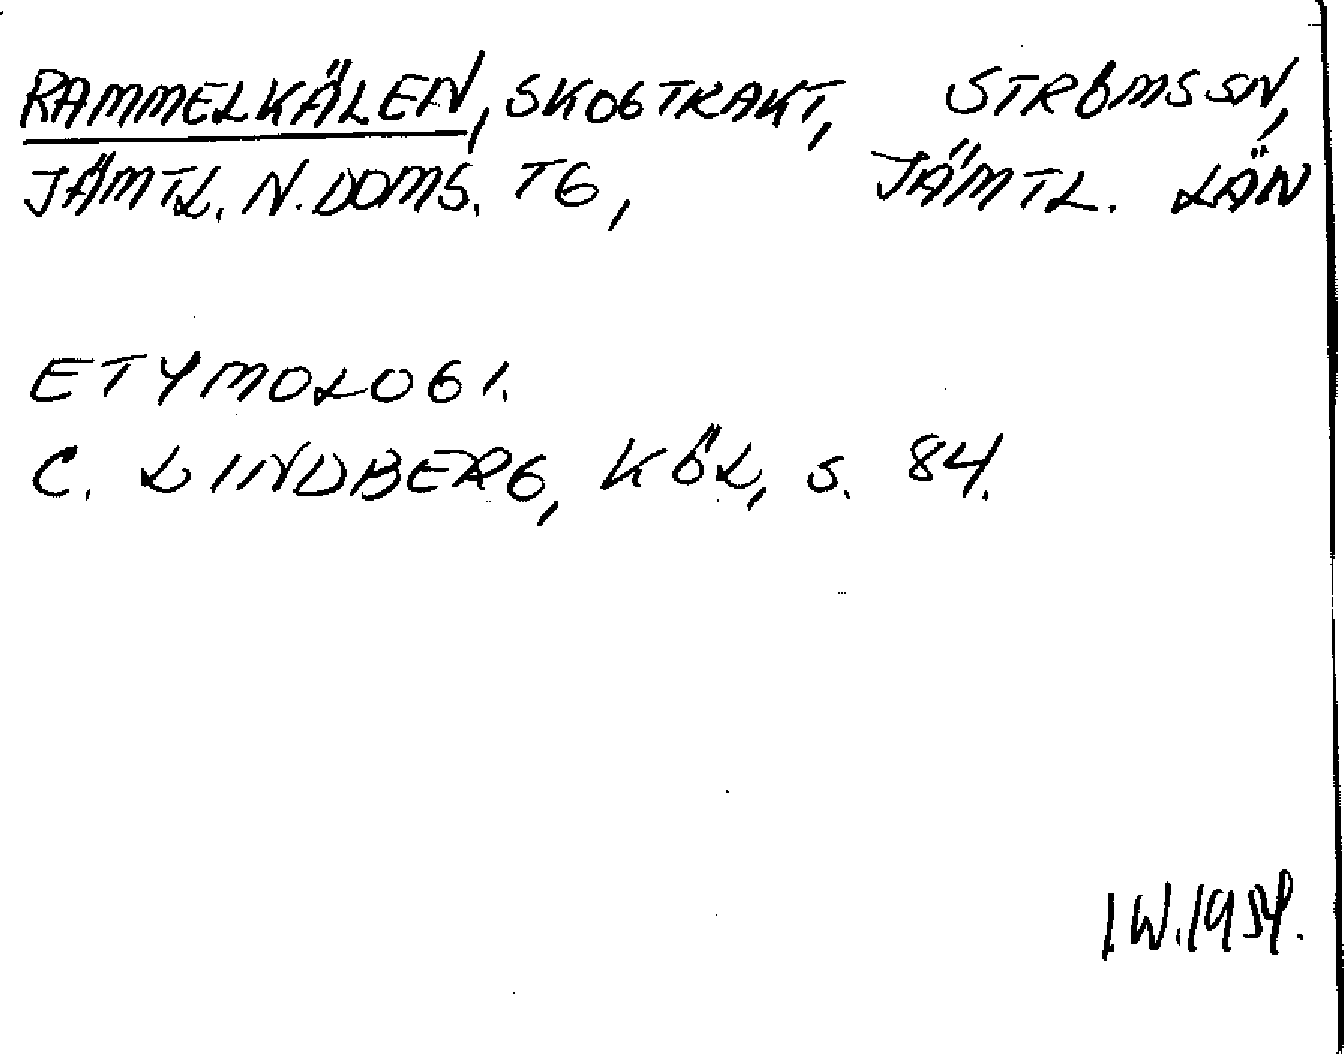 RAMMELKÄLEN, SKOGTRAKT, STRÖMS SN,
JÄMTL. N. DOMS. TG, JÄMTL. LÄN
ETYMOLOGI.
C. LINDBERG, KÖL, S. 84.
I W. 1954.